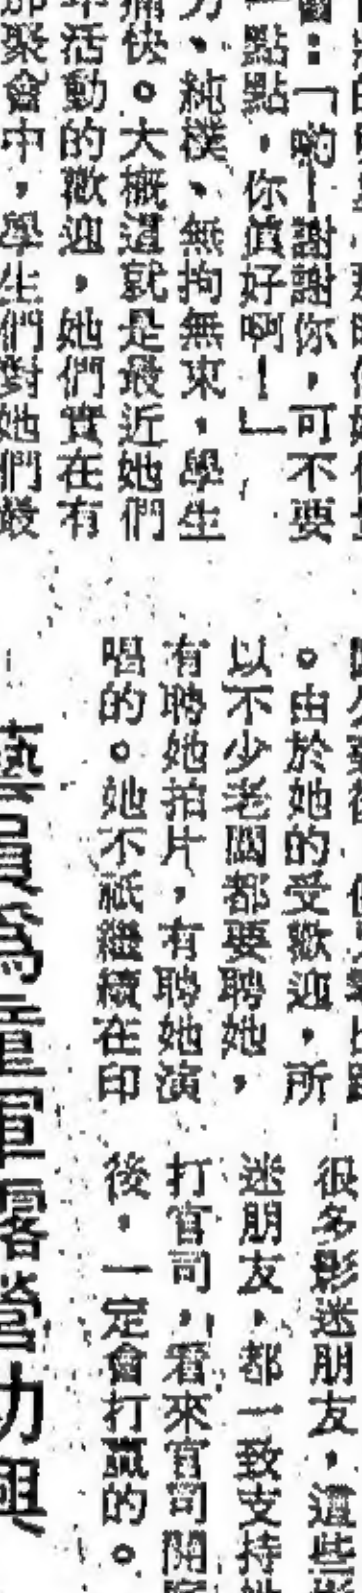 ：「喲！謝謝你，可不要
一點點，你真好啊！」
力、純樸、無拘無束，學生
痛快。大概這就是最近她們
活動的歡迎，她們實在有
聚會中，學生們對她們
。由於她的受歡迎，所
以不少老闆都要聘她，
有聘她拍片，有聘她演
唱的。她不祇繼續在印
很多影迷朋友，這些
迷朋友，都一致支持她
打官司，看來官司開
後，一定會打贏的。
童軍露營助興